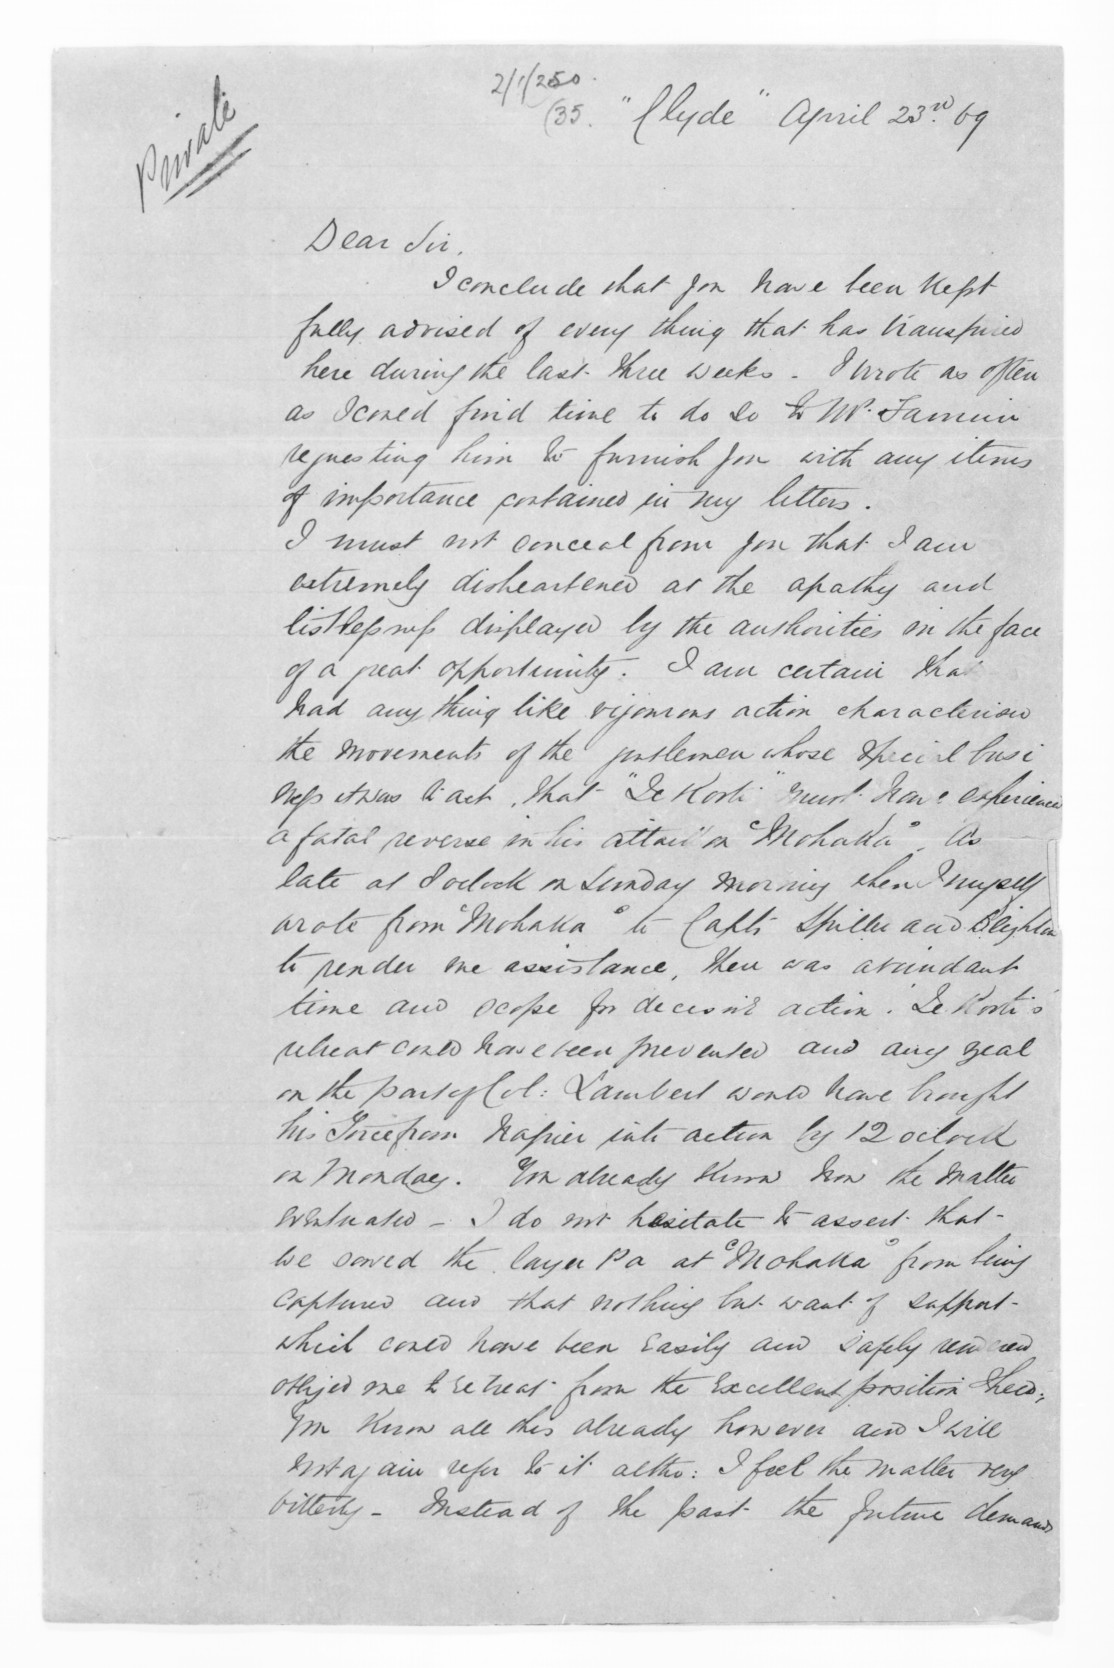 2/1/250.
(35.
Private
"Clyde" April 23rd. 69
Dear Sir,
I conclude that you have been kept
fully advised of every thing that has transpired
here during the last three weeks - I wrote as often
as I coued find time to do so to Mr.
requesting him to furnish you with any items
of importance contained in my letters.
I must not conceal from you that I am
extremely disheartened at the apathy and
listlessness displayed by the authorities in the face
of a great opportunity. I am certain that
had any thing like vigourous action characterised
the movements of the gentlemen whose special busi
ness it was to act, that "Te Kooti" must have experienced
a fatal reverse in his attack on "Mohaka". As
late as 8 oclock on Sunday morning when I myself
wrote from "Mohaka" to Capts Spiller and Bleighton
to render me assistance, there was abundant
time and scope for decisive action. Te Kooti's
retreat could have been prevented and any zeal
on the part of Col: Lambert would have brought
his Force from Napier into action by 12 oclock
on Monday. You already know how the matter
eventuated - I do not hesitate to assert that
we saved the larger Pa at "Mohaka" from being
captured and that nothing but want of support
which could have been easily and safely rendered
obliged me to retreat from the excellent position I held;
You know all this already however and I will
not again refer to it altho: I feel the matter very
bitterly - Instead of the past the future demands